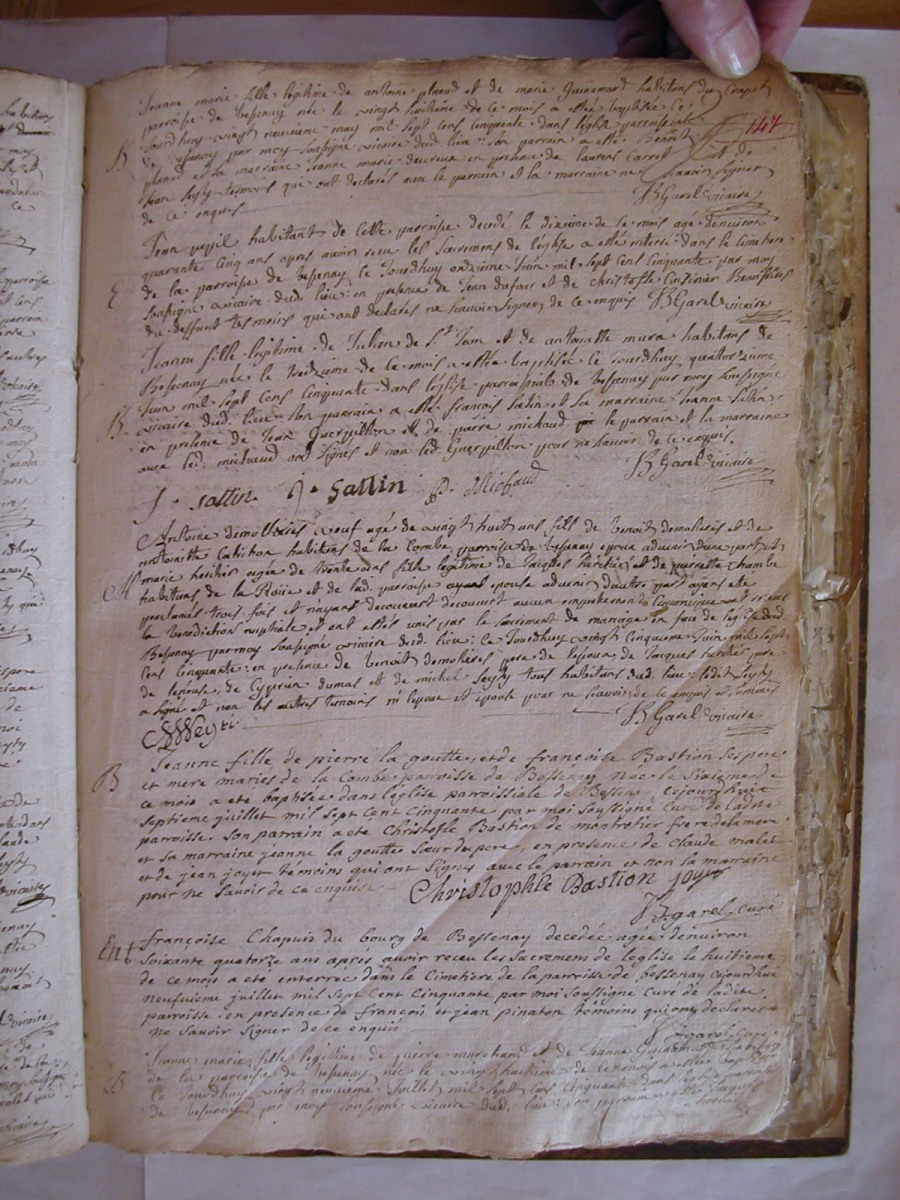 147
B
Jeanne marie fille legitime de antoine planud et de marie Guinamard habitans du
paroisse de bessenay née le vingt huitieme de ce mois a esté baptisée ce
Jourdhuy vingt neuvieme may mil sept cens cinquante dans leglise parroissiale
de bessenay par moy soussigne vicaire dud. lieu son parrain a esté benoit
planud et sa marraine Jeanne marie en presence de laurent et de
Jean temoins qui ont declarés avec le parrain et la marraine ne scavoir signer
de ce enquis JB Garel vicaire
E
Jean habitant de cette parroisse decedé le dixieme de ce mois agé denviron
quarante cinq ans apres avoir receu les sacremens de leglise a esté enterré dans le cimetiere
de la parroisse de bessenay ce Jourdhuy onzieme Juin mil sept cens cinquante par moy
soussigne vicaire dud. lieu en presence de Jean et de christofle
du deffunt temoins qui ont declarés ne scavoir signer de ce enquis JB Garel vicaire
B
Jeanne fille legitime de Julien de St Jean et de antoinette mura habitans de
Bessenay née le treizieme de ce mois a esté baptisée ce Jourdhuy quatorzieme
Juin mil sept cens cinquante dans leglise parroissiale de bessenay par moy soussigne
vicaire dud. lieu son parrain a esté francois satin et sa marraine Jeanne satin
en presence de Jean Guerpillon et de pierre michaud le parrain et la marraine
avec led. michaud ont signés et non led. Guerpillon pour ne scavoir de ce enquis
JB Garel vicaire
f. sattin J. Sattin p. Michaud
M
Antoine demolieres veuf agé de vingt huit ans fils de benoit demolieres et de
antoinette habitans de la Combe parroisse de bessenay epoux advenir dune part et
marie agée de trente ans fille legitime de Jacques et de pierrette
habitans de la Roüe et de lad. parroisse epouse advenir dautre part ayans eté
proclamés trois fois et nayant decouvert aucun empechement ont receu
la benediction nuptiale et ont etés unis par le sacrement de mariage en face de leglise dud.
Bessenay par moy soussigne vicaire dud. lieu ce Jourdhuy vingt cinquieme Juin mil sept
cens cinquante en presence de benoit demolieres pere de lepoux, de Jacques pere
de lepouse, de Cyprien dumas et de michel tous habitans dud. lieu ledit
a signé et non les autres temoins ni lepoux et epouse pour ne scavoir de ce enquis et sommés
JB Garel vicaire
B
Jeanne fille de pierre la goutte et de francoise Bastion ses pere
et mere mariés de la Combe paroisse de Bessenay née le Sixieme de
ce mois a eté baptisée dans léglise paroissiale de Bessenay cejourdhuit
septieme juillet mil sept Cent Cinquante par moi soussigné Curé de ladite
parroisse. Son parrain a eté Christofle Bastion de montrotier frere de la mere
et sa marraine jeanne la goutte sœur du pere, en presence de claude malet
et de jean joyet temoins qui ont signés avec le parrain et non la marraine
pour ne Savoir de ce enquise Christophle Bastion joyet
JB garel, curé
Ent
françoise Chapuis du bourg de Bessenay decedée agée denviron
soixante quatorze ans apres avoir receu les sacremens de leglise le huitieme
de ce mois a eté enterrée dans le Cimetiere de la parroisse de bessenay cejourdhui
neufvieme juillet mil sept Cent Cinquante par moi soussigne curé de ladite
parroisse en presence de françois et jean pinaton temoins qui ont declarés
ne savoir signer de ce enquis
JB garel Curé
B
Jeanne marie fille legitime de pierre marchand et de Jeanne
de la parroisse de bessenay née le vingt huitieme de ce mois a esté baptisée
ce Jourdhuy vingt neuvieme Juillet mil sept cens cinquante dans leglise
de bessenay par moy soussigne vicaire dud. lieu son parrain a esté